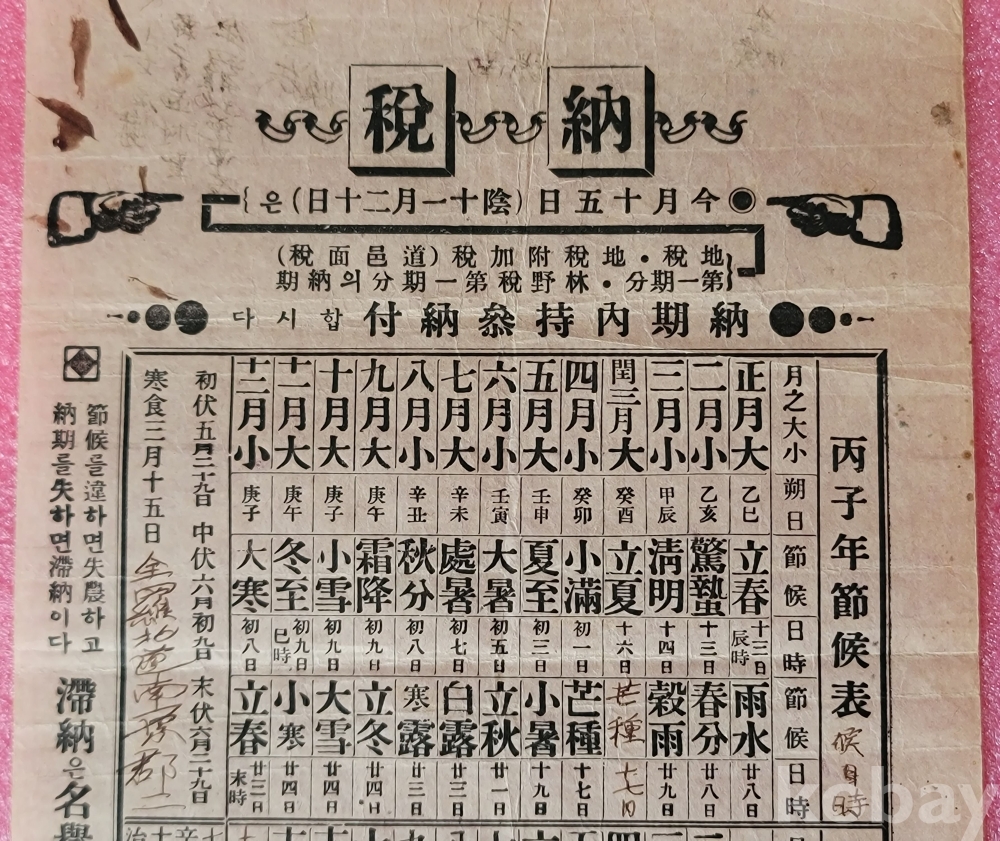 納稅
今月十五日(陰十一月二十日)은
地稅・地稅附加稅(道邑面稅)
第一期分・林野稅第一期分의納期
納期內持參納付합시다
丙子年節候表 候日時
月之大小 朔日 節候 日時 節候 日時
正月大 乙巳 立春 十三日辰時 雨水 廿八日
二月小 乙亥 驚蟄 十三日 春分 廿八日
三月小 甲辰 清明 十四日 穀雨 廿九日
閏三月大 癸酉 立夏 十六日 芒種 七日
四月小 癸卯 小滿 初一日 芒種 十七日
五月大 壬申 夏至 初三日 小暑 十九日
六月小 壬寅 大暑 初五日 立秋 廿一日
七月大 辛未 處暑 初七日 白露 廿三日
八月小 辛丑 秋分 初八日 寒露 廿三日
九月大 庚午 霜降 初九日 立冬 廿四日
十月大 庚子 小雪 初九日 大雪 廿四日
十一月大 庚午 冬至 初九日巳時 小寒 廿四日
十二月小 庚子 大寒 初八日 立春 廿三日末時
初伏五月二十九日 中伏六月初九日 末伏六月二十九日
寒食三月十五日
全羅北道南原郡二
節候를違하면失農하고
納期를失하면滯納이다
滯納은名譽
kobay